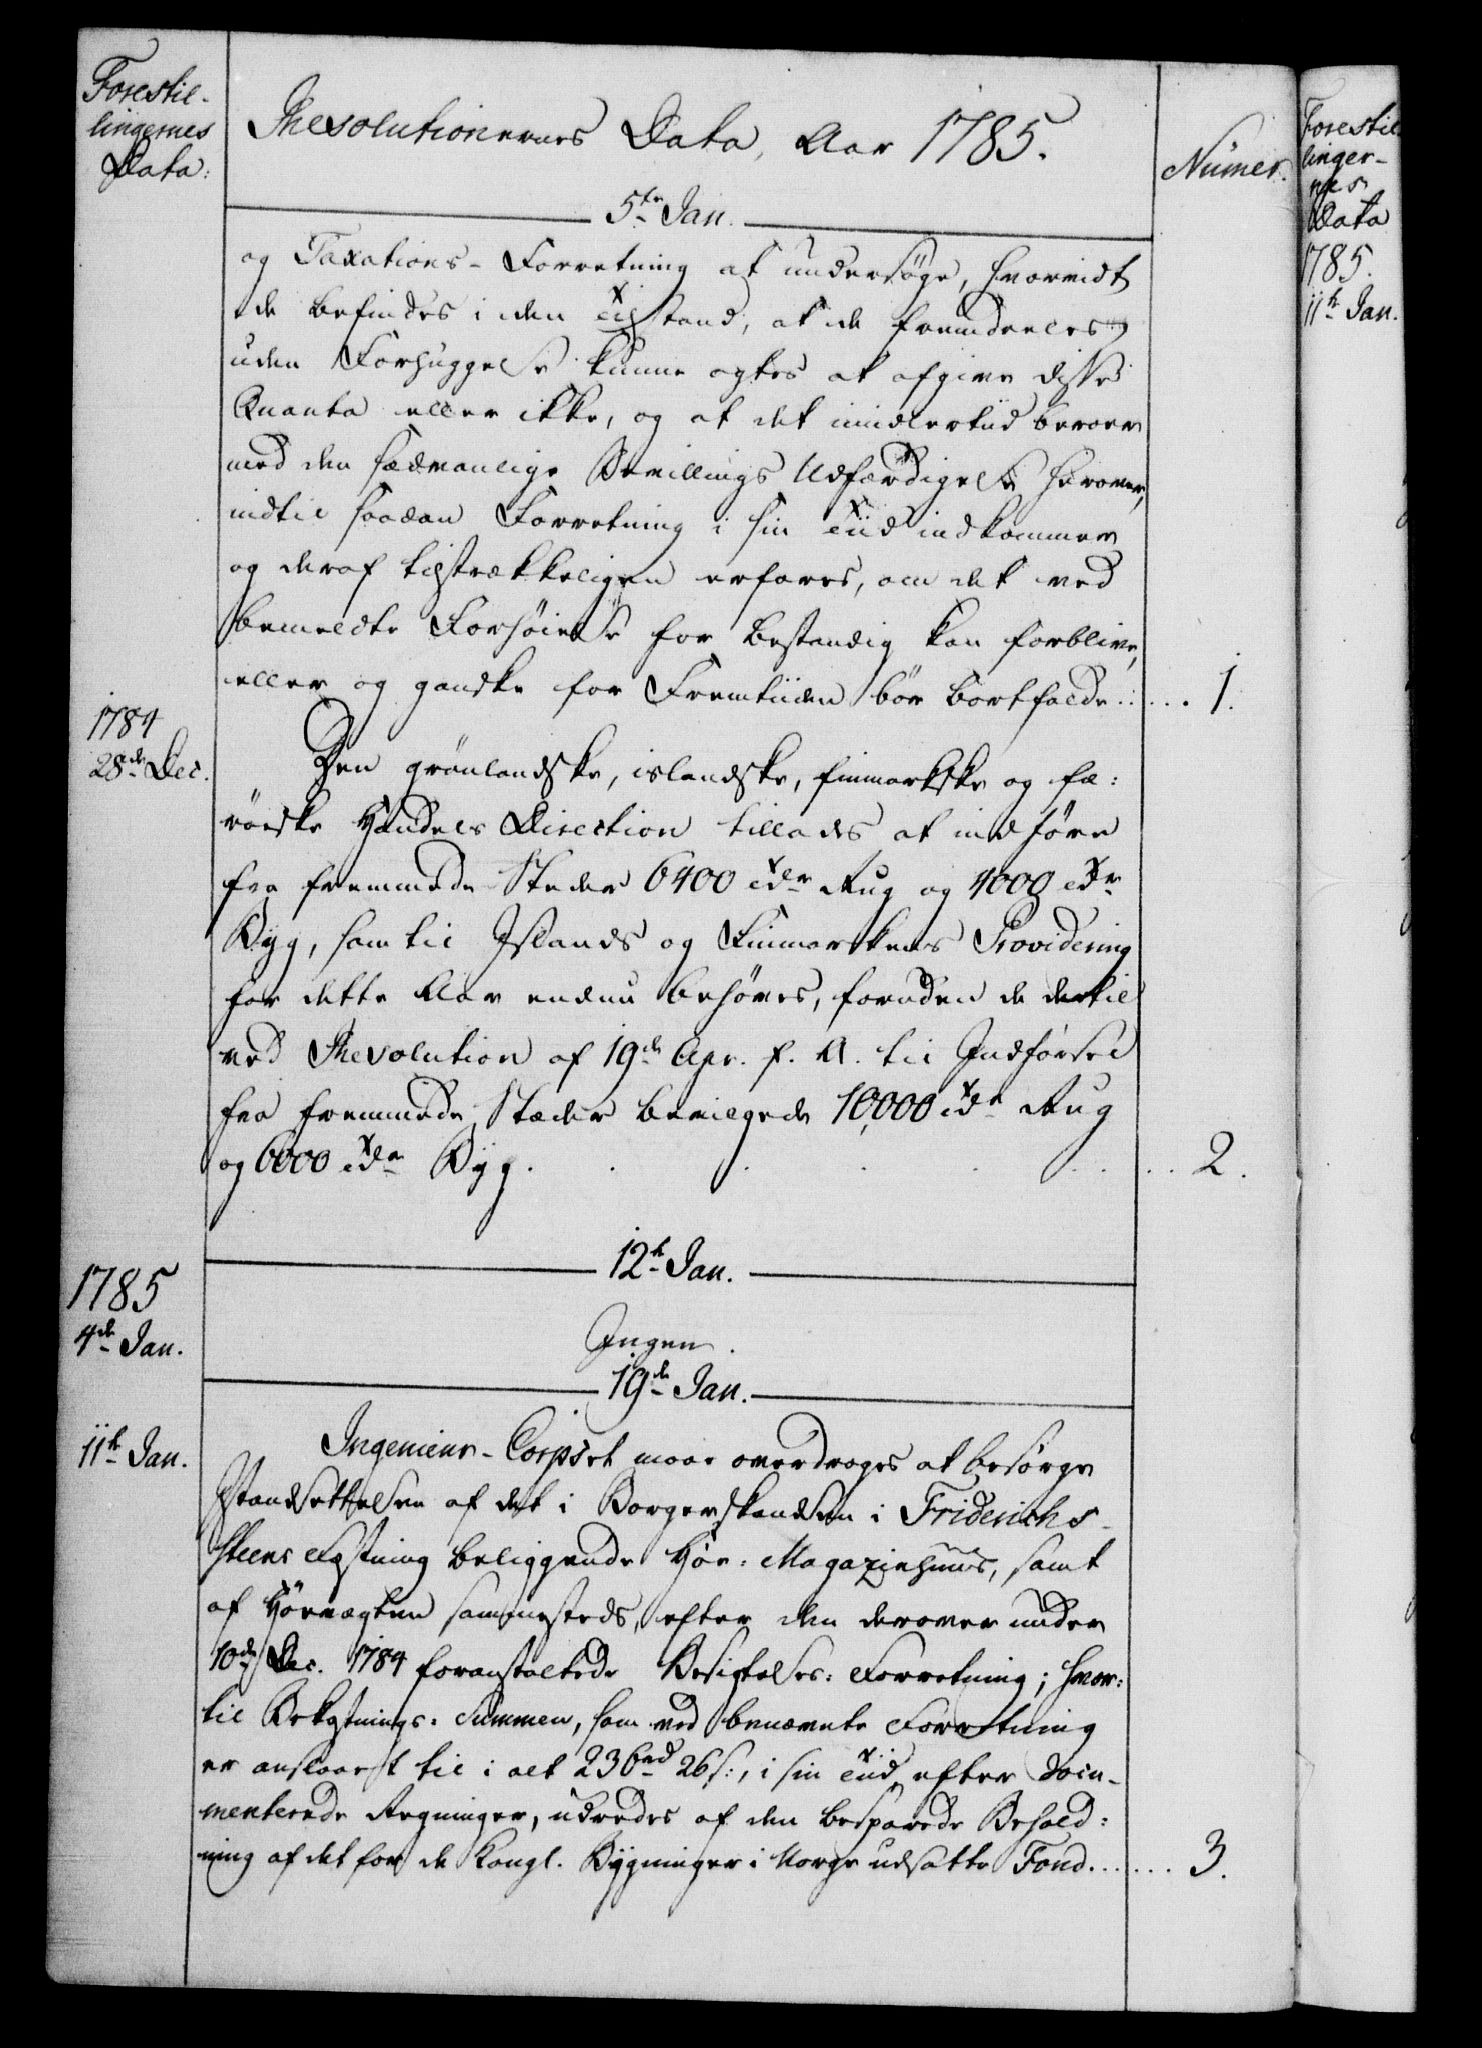 Forestil-
lingernes
Data:
Resolutionernes Data, Aar 1785.
Numer.
5te Jan.
og Taxations-Forretning at undersøge, hvorvidt
de befindes i den Tilstand, at de fremdeeles
uden Forhuggelse kunne agtes at afgive disse
Quanta eller ikke, og at det imidlertid beroer
med den sædvanlige Bevillings Udfærdigelse herover,
indtil saadan Forretning i sin Tiid indkommer
og deraf tilstrækkeligen erfares, om det ved
bemeldte Forhøielse for bestandig kan forblive,
eller og gandske for Fremtiiden bør bortfalde . . . . 1.
1784
28de Dec.
Den grönlandske, islandske, finmarkske og fæ:
röiske Handels Direction tillades at indføre
fra fremmede Steder 6400 Tdr Rug og 4000 Tdr
Byg, som til Islands og Finmarkens Providering
for dette Aar endnu behøves, foruden de dertil
ved Resolution af 19de Apr. f. A. til Indførsel
fra fremmede Stæder bevilgede 10,000 Tdr Rug
og 6000 Tdr Byg . . . . . . 2.
12te Jan.
1785
4de Jan.
Ingen.
19de Jan.
11te Jan.
Ingenieur-Corpset maae overdrages at besørge
Istandsættelsen af det i Borgerskandsen i Friderichs-
steens Fæstning beliggende Höe: Magazinhuus, samt
af Höevægten sammesteds, efter den derover under
10de Dec. 1784 foranstaltede Besigtelses: Forretning; hvor:
til Bekostnings: Summen, som ved benævnte Forretning
er anslaaet til i alt 236 rd 26 s:, i sin Tiid efter docu-
menterede Regninger, udredes af den besparede Behold:
ning af det for de Kongl. Bygninger i Norge udsatte Fond . . . . . . 3.
Forestil
linger-
nes
Data
1785.
11te Jan.